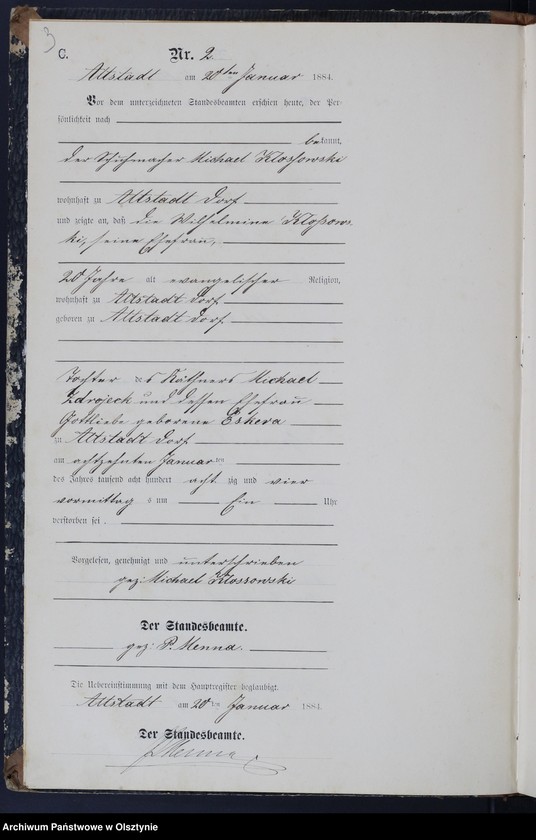 3
C. Nr. 2
Altstadt am 20ten Januar 1884.
Vor dem unterzeichneten Standesbeamten erschien heute, der Per-
sönlichkeit nach
bekannt,
der Schuhmacher Michael Klossowski
wohnhaft zu Altstadt Dorf
und zeigte an, daß die Wilhelmine Klossows-
ki, seine Ehefrau,
20 Jahre alt evangelischer Religion,
wohnhaft zu Altstadt Dorf
geboren zu Altstadt Dorf
Tochter des Käthners Michael
Zdrojeck und dessen Ehefrau
Gottliebe geborene Eskera
zu Altstadt Dorf
am achtzehnten Januar ten
des Jahres tausend acht hundert acht zig und vier
vormittag s um Ein Uhr
verstorben sei.
Vorgelesen, genehmigt und unterschrieben
gez: Michael Klossowski
Der Standesbeamte.
gez: P. Menna.
Die Uebereinstimmung mit dem Hauptregister beglaubigt.
Altstadt am 20ten Januar 1884.
Der Standesbeamte.
P Menna
Archiwum Państwowe w Olsztynie